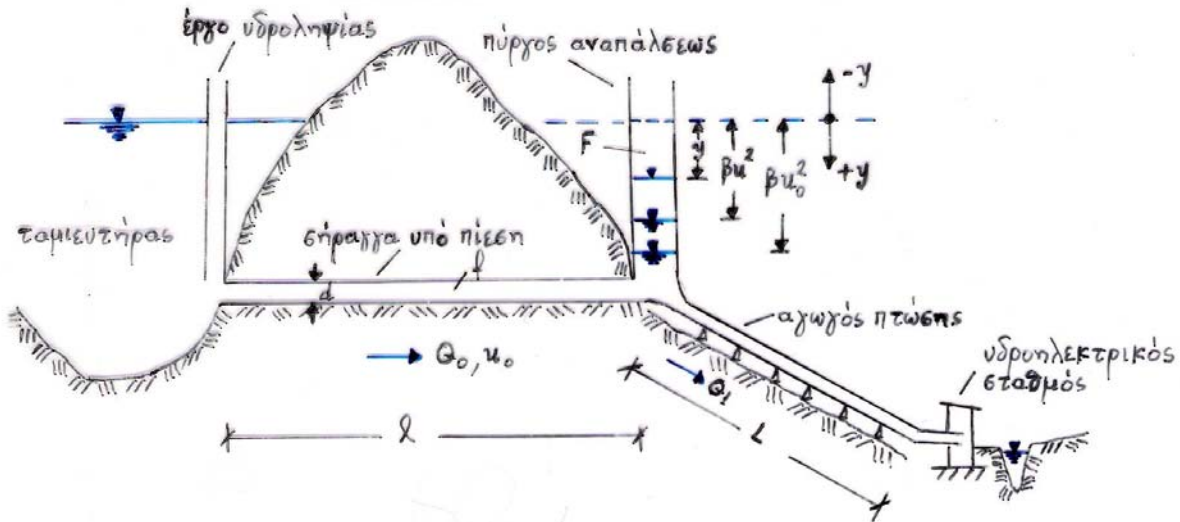 έργο υδροληψίας
πύργος αναπάλσεως
-y
F
y
βu²
βu₀²
+y
ταμιευτήρας
σήραγγα υπό πίεση
f
d
αγωγός πτώσης
υδροηλεκτρικός
σταθμός
Q₀, u₀
Q₁
l
L